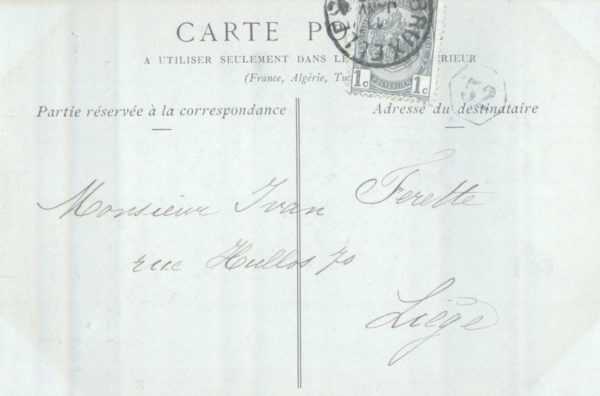 CARTE P
A UTILISER SEULEMENT DANS LE ÉRIEUR
(France, Algérie, Tu
BRUXELL
JANV
1c 1c
52
Partie réservée à la correspondance Adresse du destinataire
Monsieur Ivan Ferette
rue Hullos 70
Liége